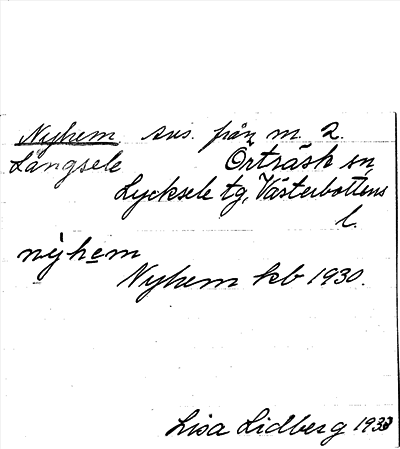 Nyhem avs. från m. 2.
Långsele Örträsk sn,
Lycksele tg, Västerbottens
l.
nýhem
Nyhem kb 1930.
Lisa Lidberg 1933